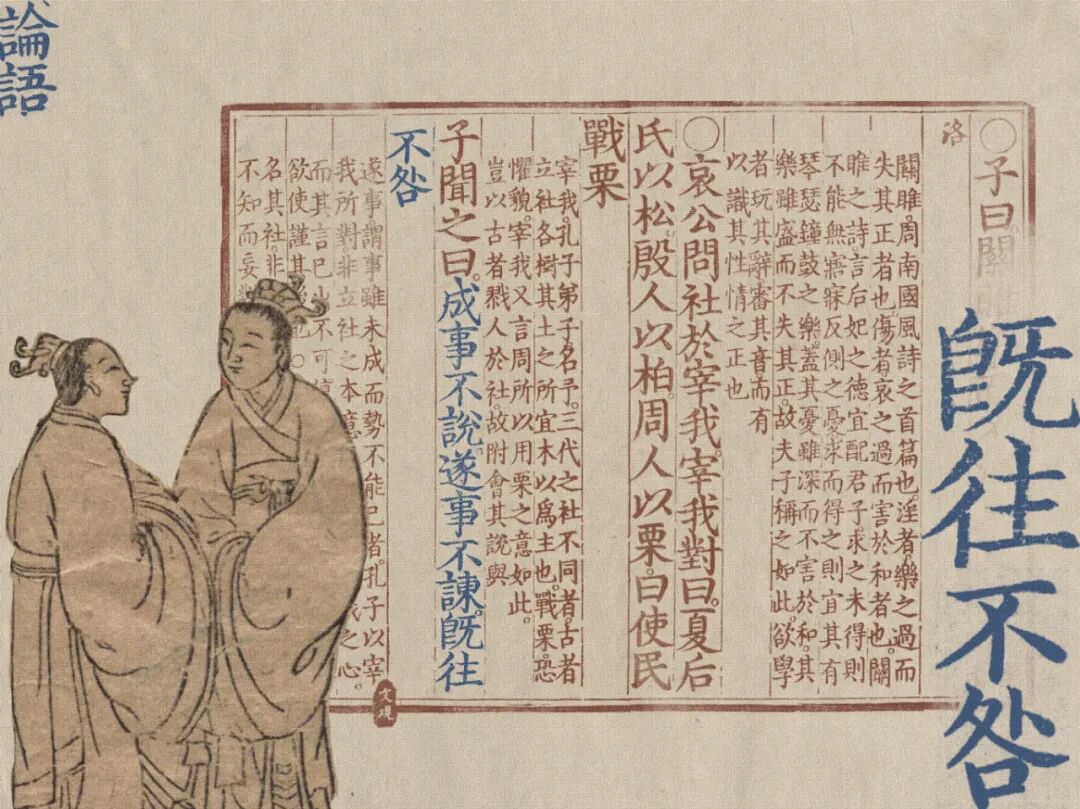 旣往不咎
○子曰關
洛
關雎。周南國風詩之首篇也。淫者。樂之過而
失其正者也。傷者。哀之過而害於和者也。關
雎之詩。言后妃之德宜配君子。求之未得則
不能無寤寐反側之憂。求而得之則宜其有
琴瑟鐘鼓之樂。蓋其憂雖深而不害於和。其
樂雖盛而不失其正。故夫子稱之如此。欲學
者玩其辭審其音而有
以識其性情之正也
○哀公問社於宰我。宰我對曰。夏后
氏以松。殷人以柏。周人以栗。曰使民
戰栗
宰我。孔子弟子。名予。三代之社不同者。古者
立社各樹其土之所宜木以爲主也。戰栗。恐
懼貌。宰我又言周所以用栗之意如此。
豈以古者戮人於社。故附會其說與
子聞之曰。成事不說。遂事不諫。旣往
不咎
遂事謂事雖未成而勢不能已者。孔子以宰
我所對。非立社之本意
之心。
而其言已出不可
欲使謹其
名其社。非
不知而妄
文觀
論語